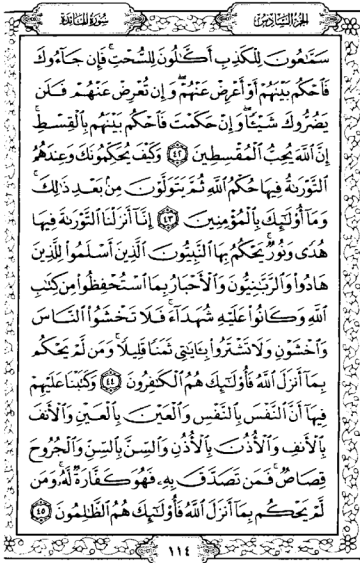 الجزء السادس سورة المائدة
سَمَّٰعُونَ لِلْكَذِبِ أَكَّٰلُونَ لِلسُّحْتِ ۚ فَإِن جَآءُوكَ
فَٱحْكُم بَيْنَهُمْ أَوْ أَعْرِضْ عَنْهُمْ ۖ وَإِن تُعْرِضْ عَنْهُمْ فَلَن
يَضُرُّوكَ شَيْـًٔا ۖ وَإِنْ حَكَمْتَ فَٱحْكُم بَيْنَهُم بِٱلْقِسْطِ ۚ
إِنَّ ٱللَّهَ يُحِبُّ ٱلْمُقْسِطِينَ ٤٢ وَكَيْفَ يُحَكِّمُونَكَ وَعِندَهُمُ
ٱلتَّوْرَىٰةُ فِيهَا حُكْمُ ٱللَّهِ ثُمَّ يَتَوَلَّوْنَ مِنۢ بَعْدِ ذَٰلِكَ ۚ
وَمَآ أُو۟لَٰٓئِكَ بِٱلْمُؤْمِنِينَ ٤٣ إِنَّآ أَنزَلْنَا ٱلتَّوْرَىٰةَ فِيهَا
هُدًى وَنُورٌ ۚ يَحْكُمُ بِهَا ٱلنَّبِيُّونَ ٱلَّذِينَ أَسْلَمُوا۟ لِلَّذِينَ
هَادُوا۟ وَٱلرَّبَّٰنِيُّونَ وَٱلْأَحْبَارُ بِمَا ٱسْتُحْفِظُوا۟ مِن كِتَٰبِ
ٱللَّهِ وَكَانُوا۟ عَلَيْهِ شُهَدَآءَ ۚ فَلَا تَخْشَوُا۟ ٱلنَّاسَ
وَٱخْشَوْنِ وَلَا تَشْتَرُوا۟ بِـَٔايَٰتِى ثَمَنًا قَلِيلًا ۚ وَمَن لَّمْ يَحْكُم
بِمَآ أَنزَلَ ٱللَّهُ فَأُو۟لَٰٓئِكَ هُمُ ٱلْكَٰفِرُونَ ٤٤ وَكَتَبْنَا عَلَيْهِمْ
فِيهَآ أَنَّ ٱلنَّفْسَ بِٱلنَّفْسِ وَٱلْعَيْنَ بِٱلْعَيْنِ وَٱلْأَنفَ
بِٱلْأَنفِ وَٱلْأُذُنَ بِٱلْأُذُنِ وَٱلسِّنَّ بِٱلسِّنِّ وَٱلْجُرُوحَ
قِصَاصٌ ۚ فَمَن تَصَدَّقَ بِهِۦ فَهُوَ كَفَّارَةٌ لَّهُۥ ۚ وَمَن
لَّمْ يَحْكُم بِمَآ أَنزَلَ ٱللَّهُ فَأُو۟لَٰٓئِكَ هُمُ ٱلظَّٰلِمُونَ ٤٥
١١٤